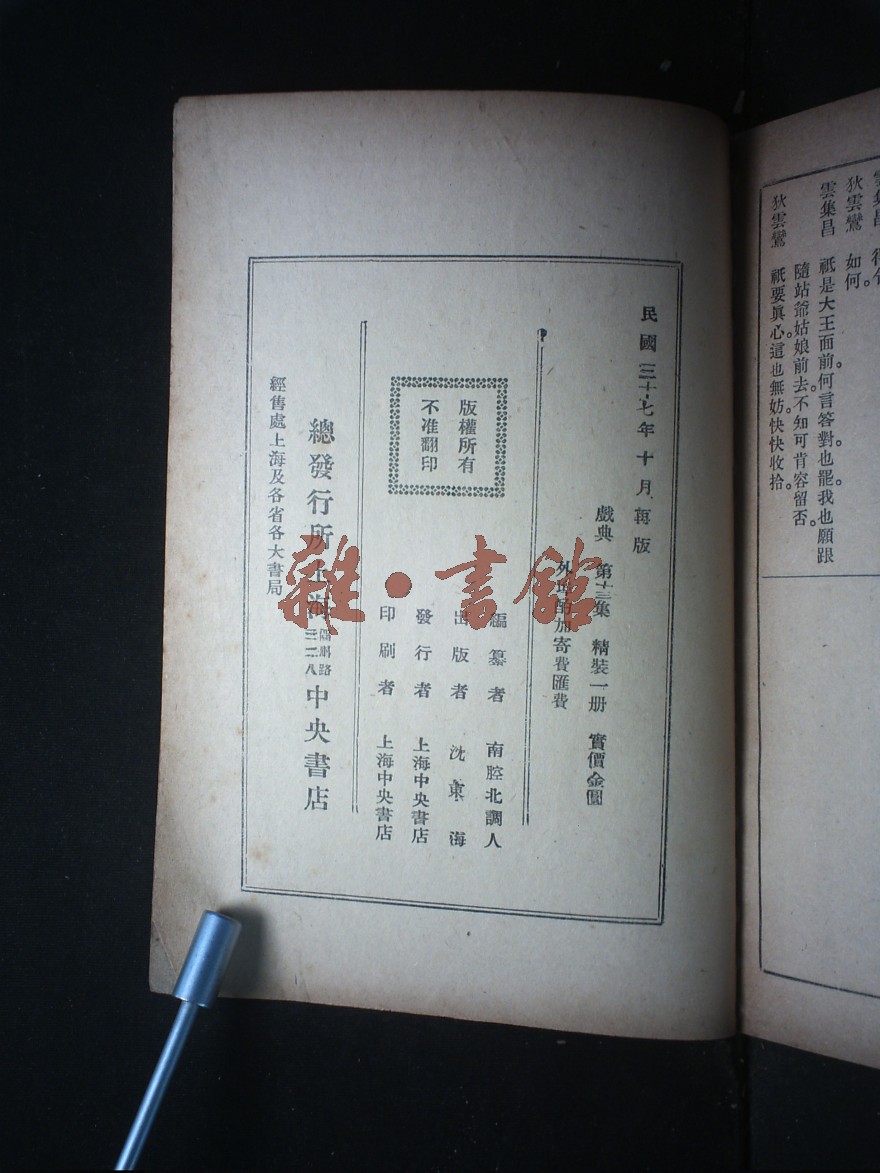 狄雲鸞　如何。
雲集昌　祇是大王面前。何言答對也罷。我也願跟
隨站爺姑娘前去。不知可肯容留否。
狄雲鸞　祇要眞心這也無妨。快快收拾。
民國三十七年十月再版
戲典　第十三集　精裝一册　實價金圓
外埠酌加寄費匯費
版權所有
不准翻印
編纂者　南腔北調人
出版者　沈東海
發行者　上海中央書店
印刷者　上海中央書店
總發行所上海
三二八中央書店
經售處上海及各省各大書局
雜·書館